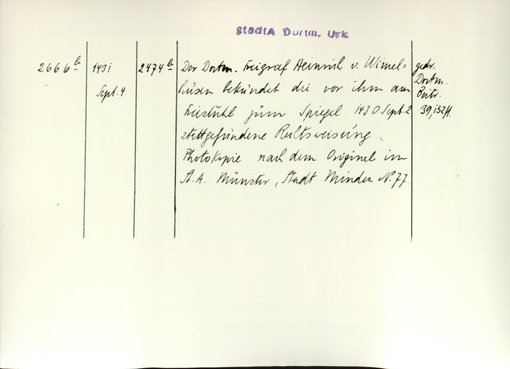 StadtA Dortm. Urk
2666 b 1431 2474 b Der Dortm. Freigraf Heinrich v. Wimel- gedr.
Sept. 4 husen bekundet die vor ihm am Dortm.
Freistuhl zum Spiegel 1430 Sept. 2 Beitr.
stattgefundene Rechtsweisung. 39, 152ff.
Photokopie nach dem Original im
St. A. Münster, Stadt Minden N. 77.